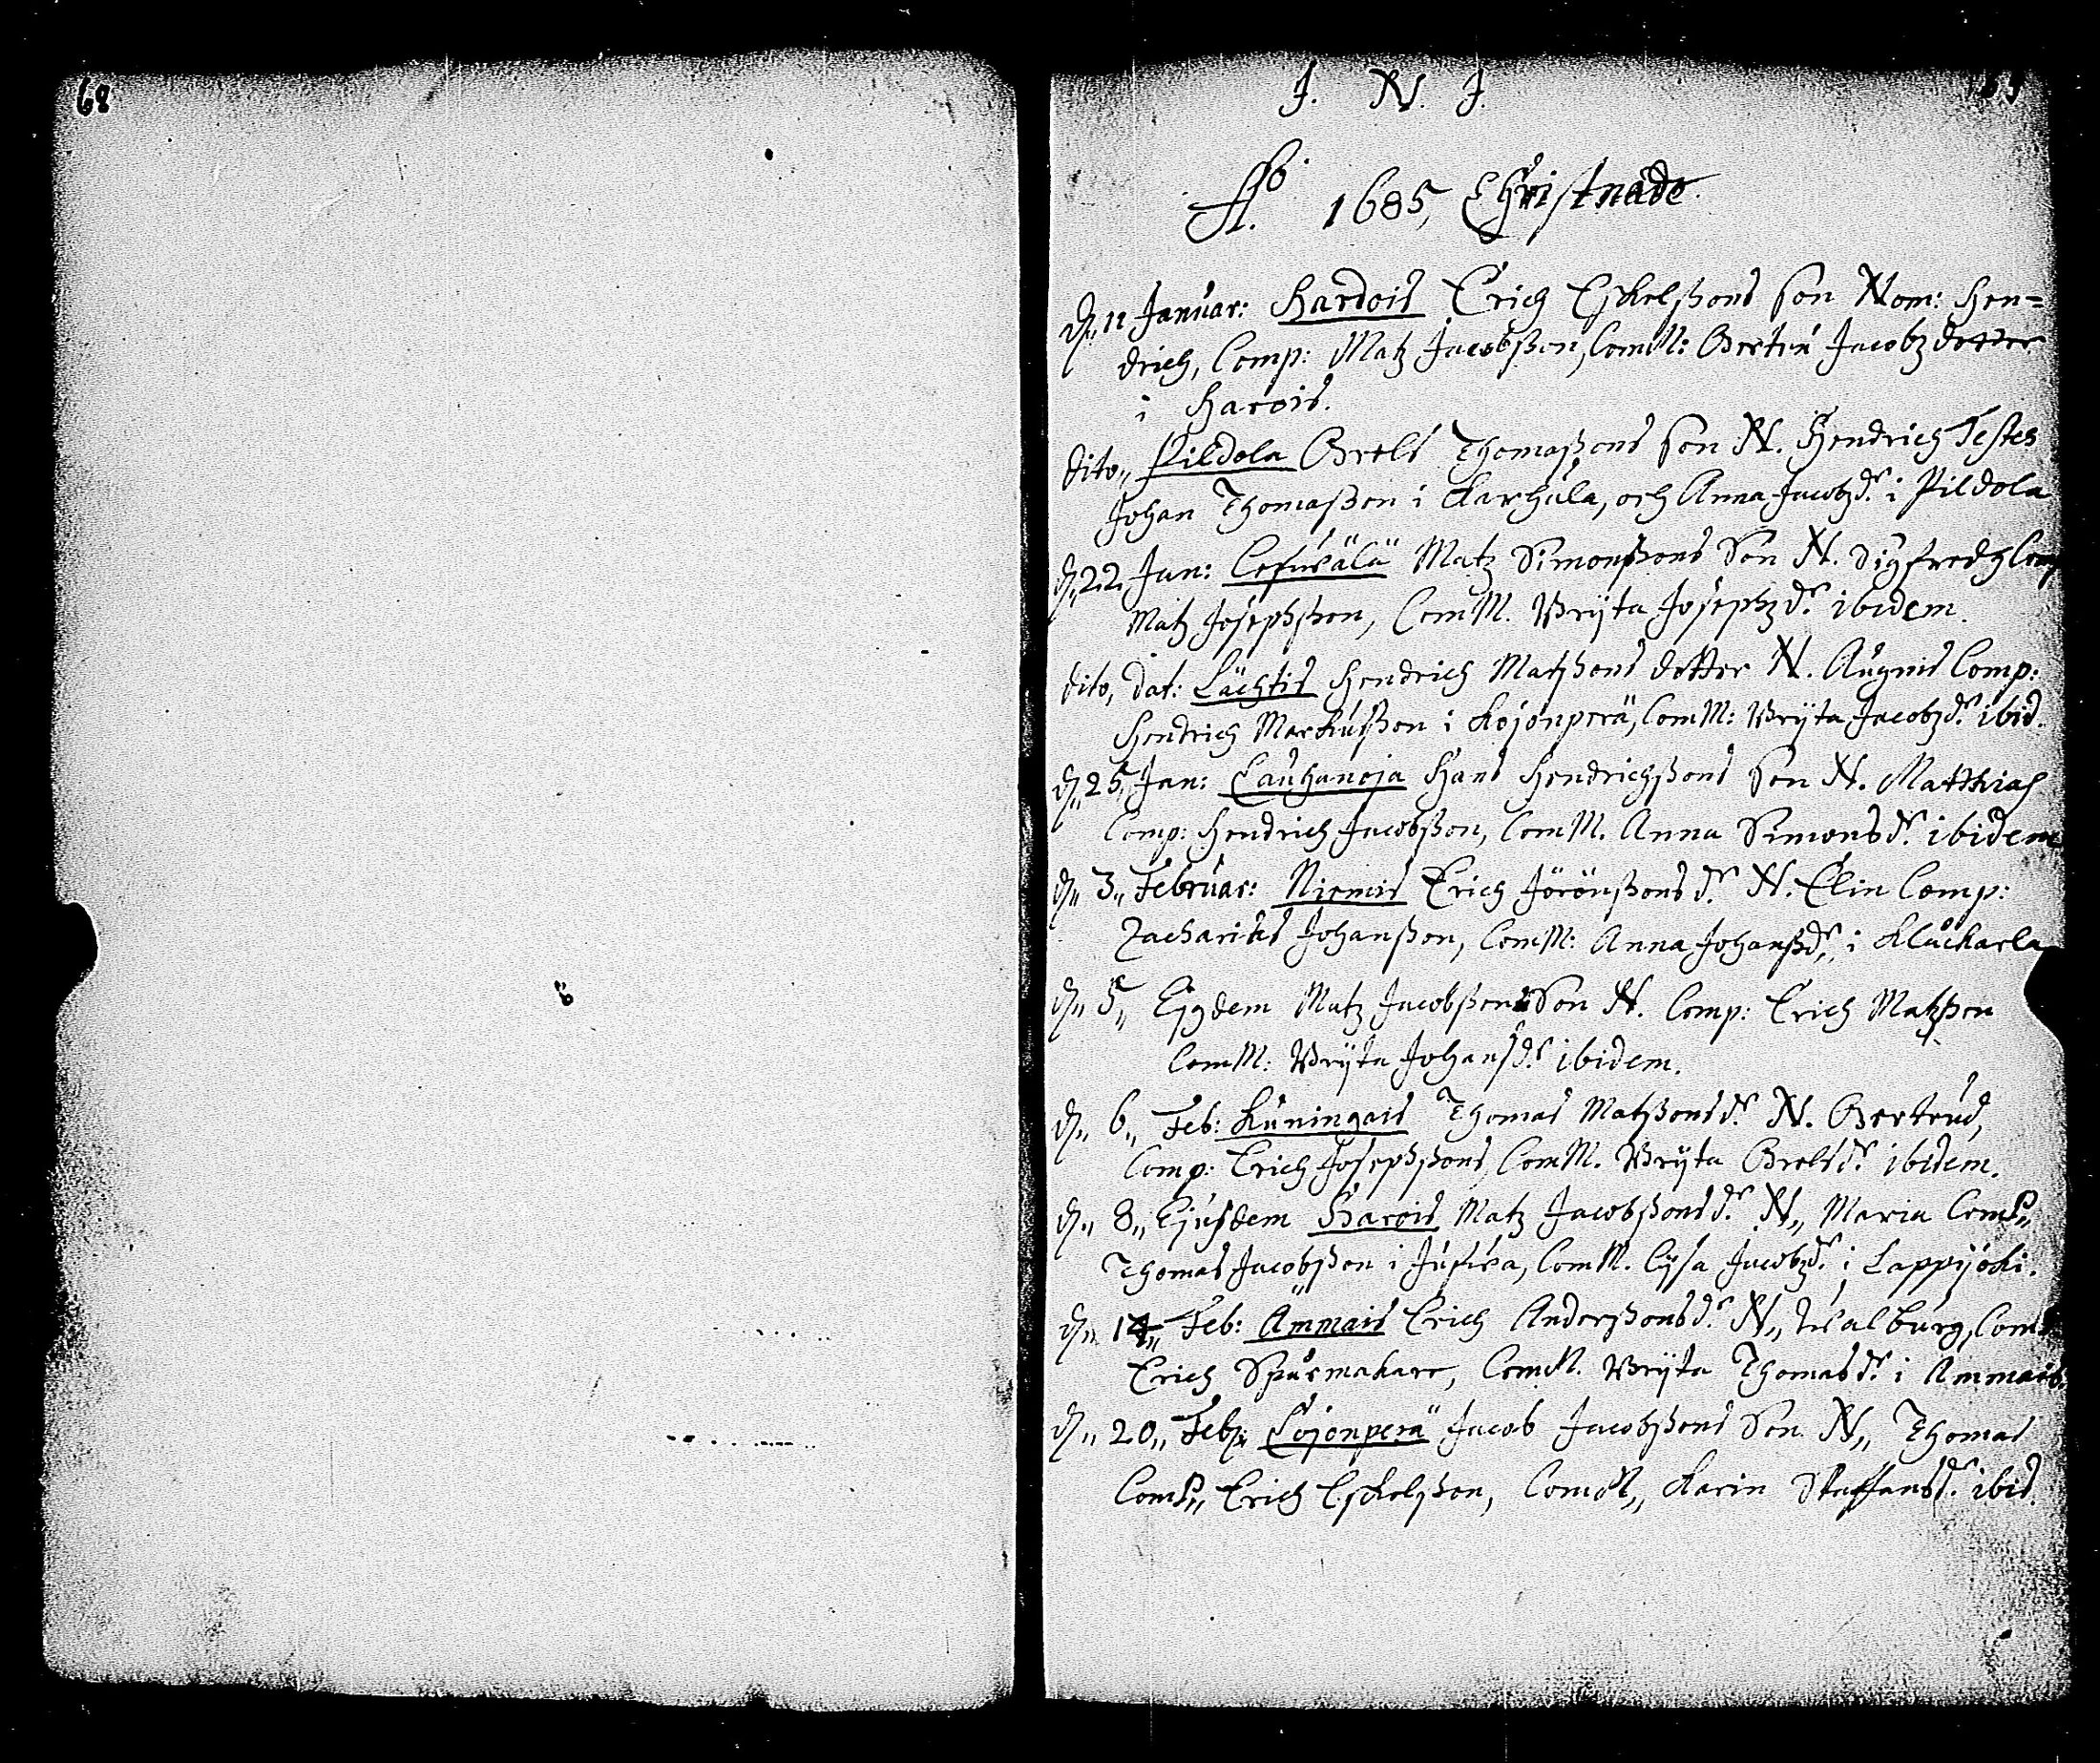 68
J. N. J.
Aº. 1685, Christnade
D. 11 Januar: Harois Erich Eskelssons son Nom: Hen=
drich, Comp: Matz Jacobsson, ComM: Jacobz dotter
i Harois.
dito,, Pildola Grels Thomassons son N. Hendrich Testes
Johan Thomasson i Karhula, och Anna Jacobzdr. i Pildola
D. 22 Jan: Matz Simonssons Son N. Sigfredh Comp
Matz Josephsson, ComM. Bryta Josephzdr. ibidem.
dito, dat: Lächtis Hendrich Matzsons dotter N. Augnis Comp:
Hendrich Markusson i Kojonperä, ComM: Bryta Jacobzdr. ibid.
D. 25, Jan: Cauhanoja Hans Hendrichssons son N. Matthias
Comp: Hendrich Jacobsson, ComM. Anna Simonsdr. ibidem
D,, 3,, Februar: Niemis Erich Jörönssons dr. N. Elin Comp:
Zacharias Johansson, ComM: Anna Johansdr. i Kluckarla
D,, 5,, Ejusdem Matz Jacobssons Son N. Comp: Erich Matzson
ComM: Bryta Johansdr. ibidem.
D,, 6,, Feb: Kuningais Thomas Matzsons dr. N. Gertrud,
Comp: Erich Josephssons, ComM. Bryta Grelsdr. ibidem.
D,, 8,, Ejusdem Harois Matz Jacobssons dr. N,, Maria ComP,,
Thomas Jacobsson i ComM. Lysa Jacobzdr. i Lappijoki.
D,, 14,, Feb: Ämmäis Erich Anderssons dr. N,, Walburg, Com
Erich Spåremakare, ComM. Bryta Thomasdr. i Ammais.
D,, 20,, Feb: Cojonperä Jacob Jacobssons Son N,, Thomas
ComP,, Erich Eskelsson, ComM,, Karin Staffansdr. ibid.